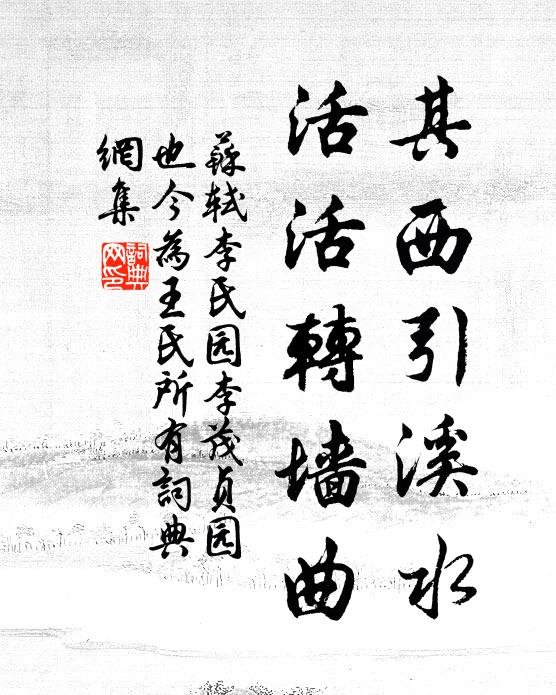 其西引溪水
活活轉墙曲
蘇軾李氏园李茂贞园
也今為王氏所有詞典
網集
詞典
网印